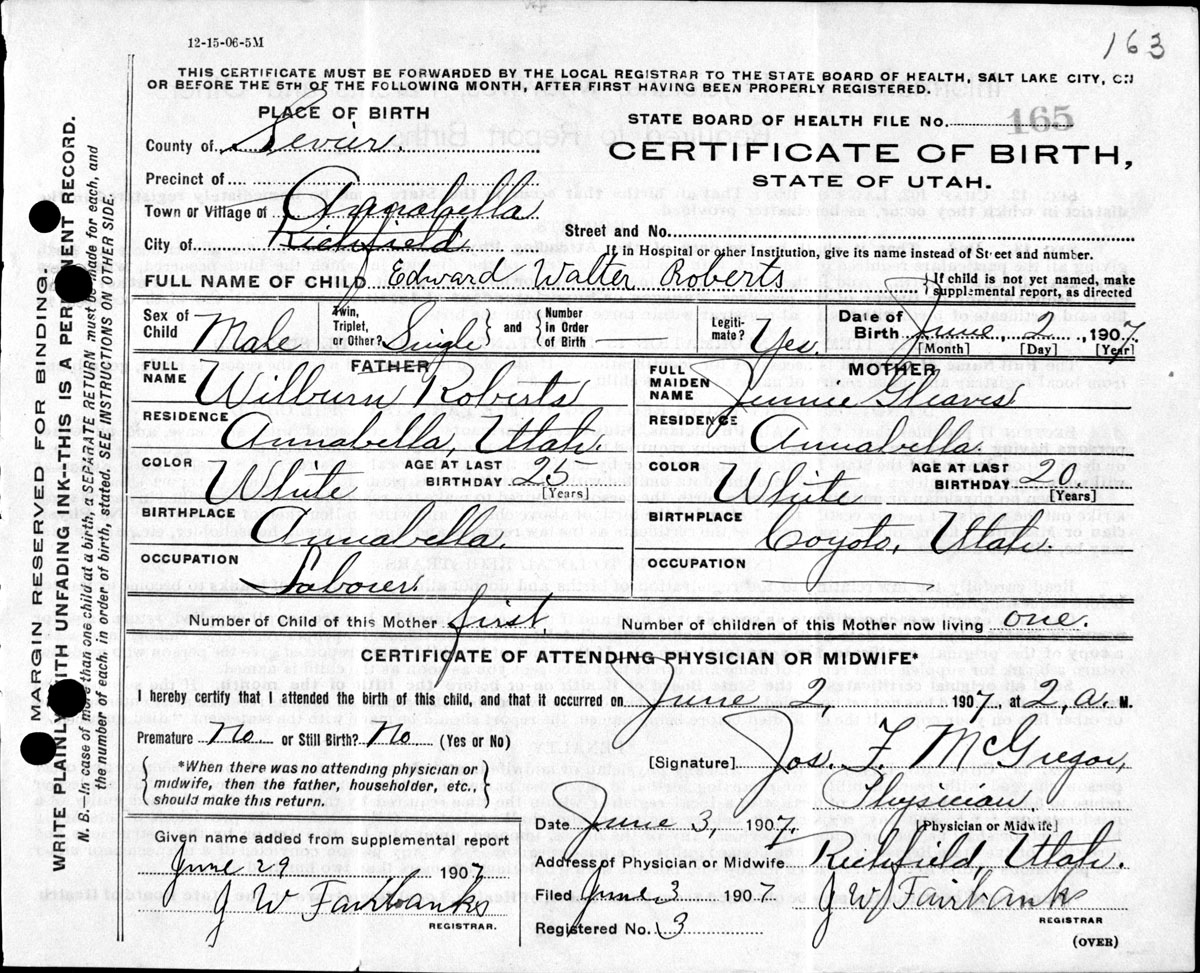 12-15-06-5M
163
THIS CERTIFICATE MUST BE FORWARDED BY THE LOCAL REGISTRAR TO THE STATE BOARD OF HEALTH, SALT LAKE CITY, ON
OR BEFORE THE 5TH OF THE FOLLOWING MONTH, AFTER FIRST HAVING BEEN PROPERLY REGISTERED.
PLACE OF BIRTH
County of Sevier.
Precinct of
Town or Village of Annabella
City of Richfield
STATE BOARD OF HEALTH FILE No. 165
CERTIFICATE OF BIRTH,
STATE OF UTAH.
Street and No.
If in Hospital or other Institution, give its name instead of Street and number.
FULL NAME OF CHILD Edward Walter Roberts
If child is not yet named, make
supplemental report, as directed
Sex of Child Male
Twin, Triplet, or Other? Single and Number in Order of Birth
Legiti- mate? Yes.
Date of Birth June, 2, 1907
[Month] [Day] [Year]
FATHER
FULL NAME Wilburn Roberts
RESIDENCE Annabella, Utah.
COLOR White AGE AT LAST BIRTHDAY 25 [Years]
BIRTHPLACE Annabella.
OCCUPATION Laborer.
MOTHER
FULL MAIDEN NAME Jennie Gleaves
RESIDENCE Annabella.
COLOR White AGE AT LAST BIRTHDAY 20 [Years]
BIRTHPLACE Coyoto, Utah.
OCCUPATION
Number of Child of this Mother first, Number of children of this Mother now living one.
CERTIFICATE OF ATTENDING PHYSICIAN OR MIDWIFE*
I hereby certify that I attended the birth of this child, and that it occurred on June 2, 1907, at 2, a. M.
Premature No or Still Birth? No. (Yes or No)
*When there was no attending physician or
midwife, then the father, householder, etc.,
should make this return.
[Signature] Jos. F. McGregor,
Physician,
[Physician or Midwife]
Date June 3, 1907,
Address of Physician or Midwife Richfield, Utah.
Filed June 3 1907
Registered No. 3
J W Fairbanks
REGISTRAR
(OVER)
Given name added from supplemental report
June 29 1907
J W Fairbanks
REGISTRAR.
MARGIN RESERVED FOR BINDING.
WRITE PLAINLY WITH UNFADING INK--THIS IS A PERMANENT RECORD.
N. B. In case of more than one child at a birth, a SEPARATE RETURN must be made for each, and
the number of each, in order of birth, stated. SEE INSTRUCTIONS ON OTHER SIDE.